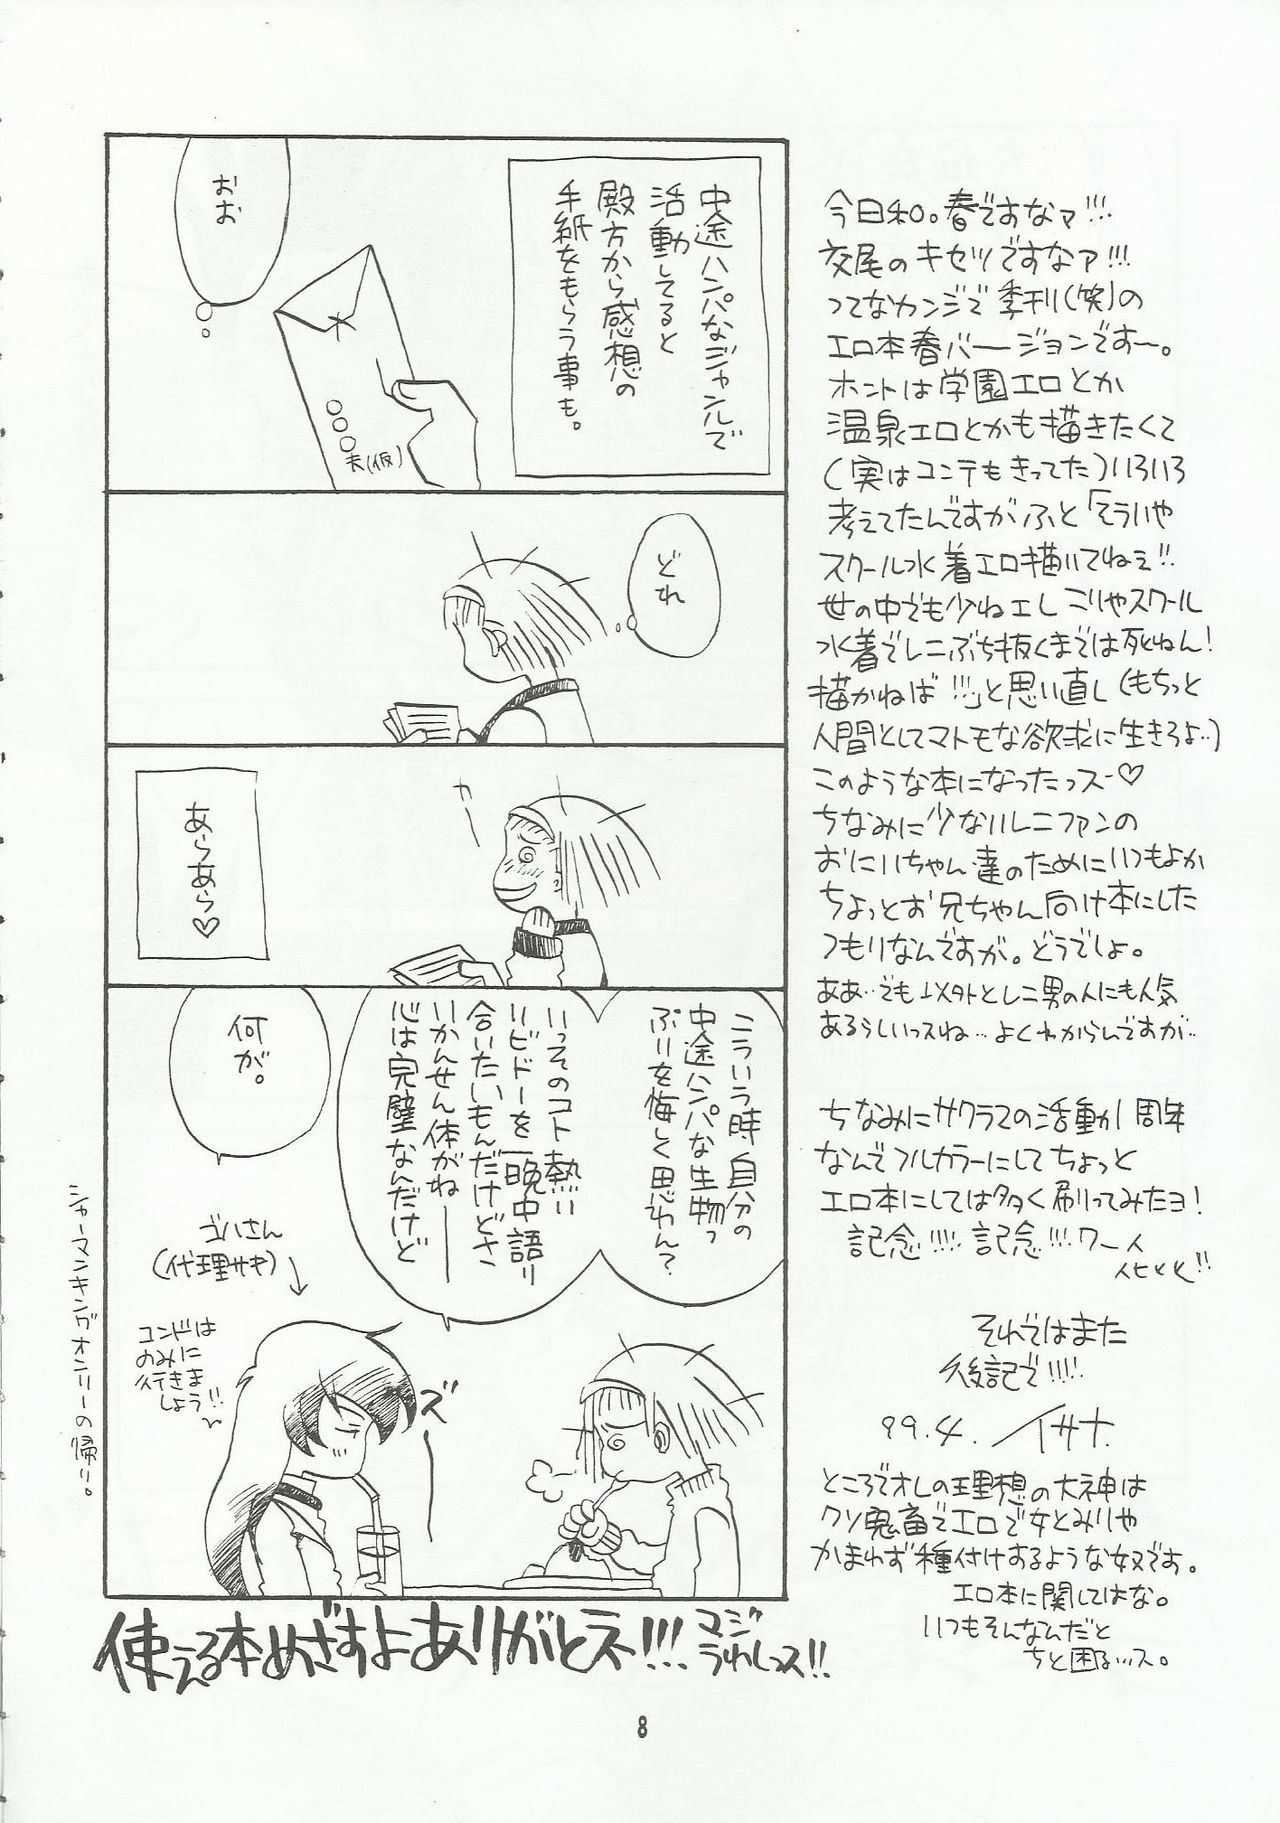 今日和。春ですなァ!!!
交尾のキセツですなァ!!!
ってなカンジで季刊(笑)の
エロ本春バージョンですー。
ホントは学園エロとか
温泉エロとかも描きたくて
(実はコンテもきってた)いろいろ
考えてたんですがふと「そういや
スクール水着エロ描いてねぇ!!
世の中でも少ねエしこりゃスクール
水着でレニぶち抜くまでは死ねん!
描かねば!!!」と思い直し(もちっと
人間としてマトモな欲求に生きろよ…)
このような本になったっスー♡
ちなみに少ないレニファンの
おにいちゃん達のためにいつもよか
ちょっとお兄ちゃん向け本にした
つもりなんですが。どうでしょ。
ああ…でも以外とレニ男の人にも人気
あるらしいっスね…よくわからんですが…
ちなみにサクラでの活動が1周年
なんでフルカラーにしてちょっと
エロ本にしては多く刷ってみたョ!
記念!!!! 記念!!!ワーイ
それではまた
後記で!!!!
99.4. イサナ
ところでオレの理想の大神は
クソ鬼畜でエロで女とみりゃ
かまわず種付けするような奴です。
エロ本に関してはな。
いつもそんなんだと
ちと困る…ス。
中途ハンパなジャンルで
活動してると
殿方から感想の
手紙をもらう事も。
おお
○○○夫(仮)
どれ
カー
あらあら♡
こういう時自分の
中途ハンパな生物っ
ぷりを悔しく思わん?
いっそのコト熱い
リビドーを一晩中語り
合いたいもんだけどさ
いかんせん体がねー
心は完璧なんだけど
何が。
ゴハさん
(代理サキ)
コンドは
のみに
行きま
しょう!!
ズー
シャーマンキングオンリーの帰り。
使える本めざすよありがとネ!!!
マジ
うれしっス!!
8